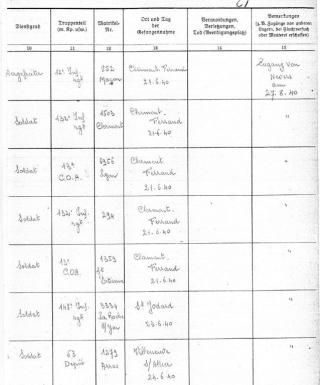 Dienstgrad
Truppenteil
(m. Kp. usw.)
Matrikel-
Nr.
Ort und Tag
der
Gefangennahme
Verwundungen,
Verletzungen,
Tod (Beerdigungsplatz)
Bemerkungen
(z. B. Zugänge von anderen
Lagern, bei Fluchtversuch
oder Meuterei erschossen)
10 11 12 13 14 15
12e Inf.
Clermont Ferrand
21.6.40
Zugang von
27.8.40
Soldat
132e Inf.
1503
Clermont
Clermont.
Ferrand
21.6.40
"
Soldat
13e
C.O.A.
Clermont
Ferrand
21.6.40
"
Soldat
Inf.
294
Clermont.
Ferrand
21.6.40
"
Soldat
13e
COA.
1353
St
Etienne
Clermont
Ferrand
21.6.40
"
Soldat
Inf.
3334
La Roche
s/Yon
St Jodard
23.6.40
"
Soldat
63
1279
Arras
Villeneuve
24.6.40
"